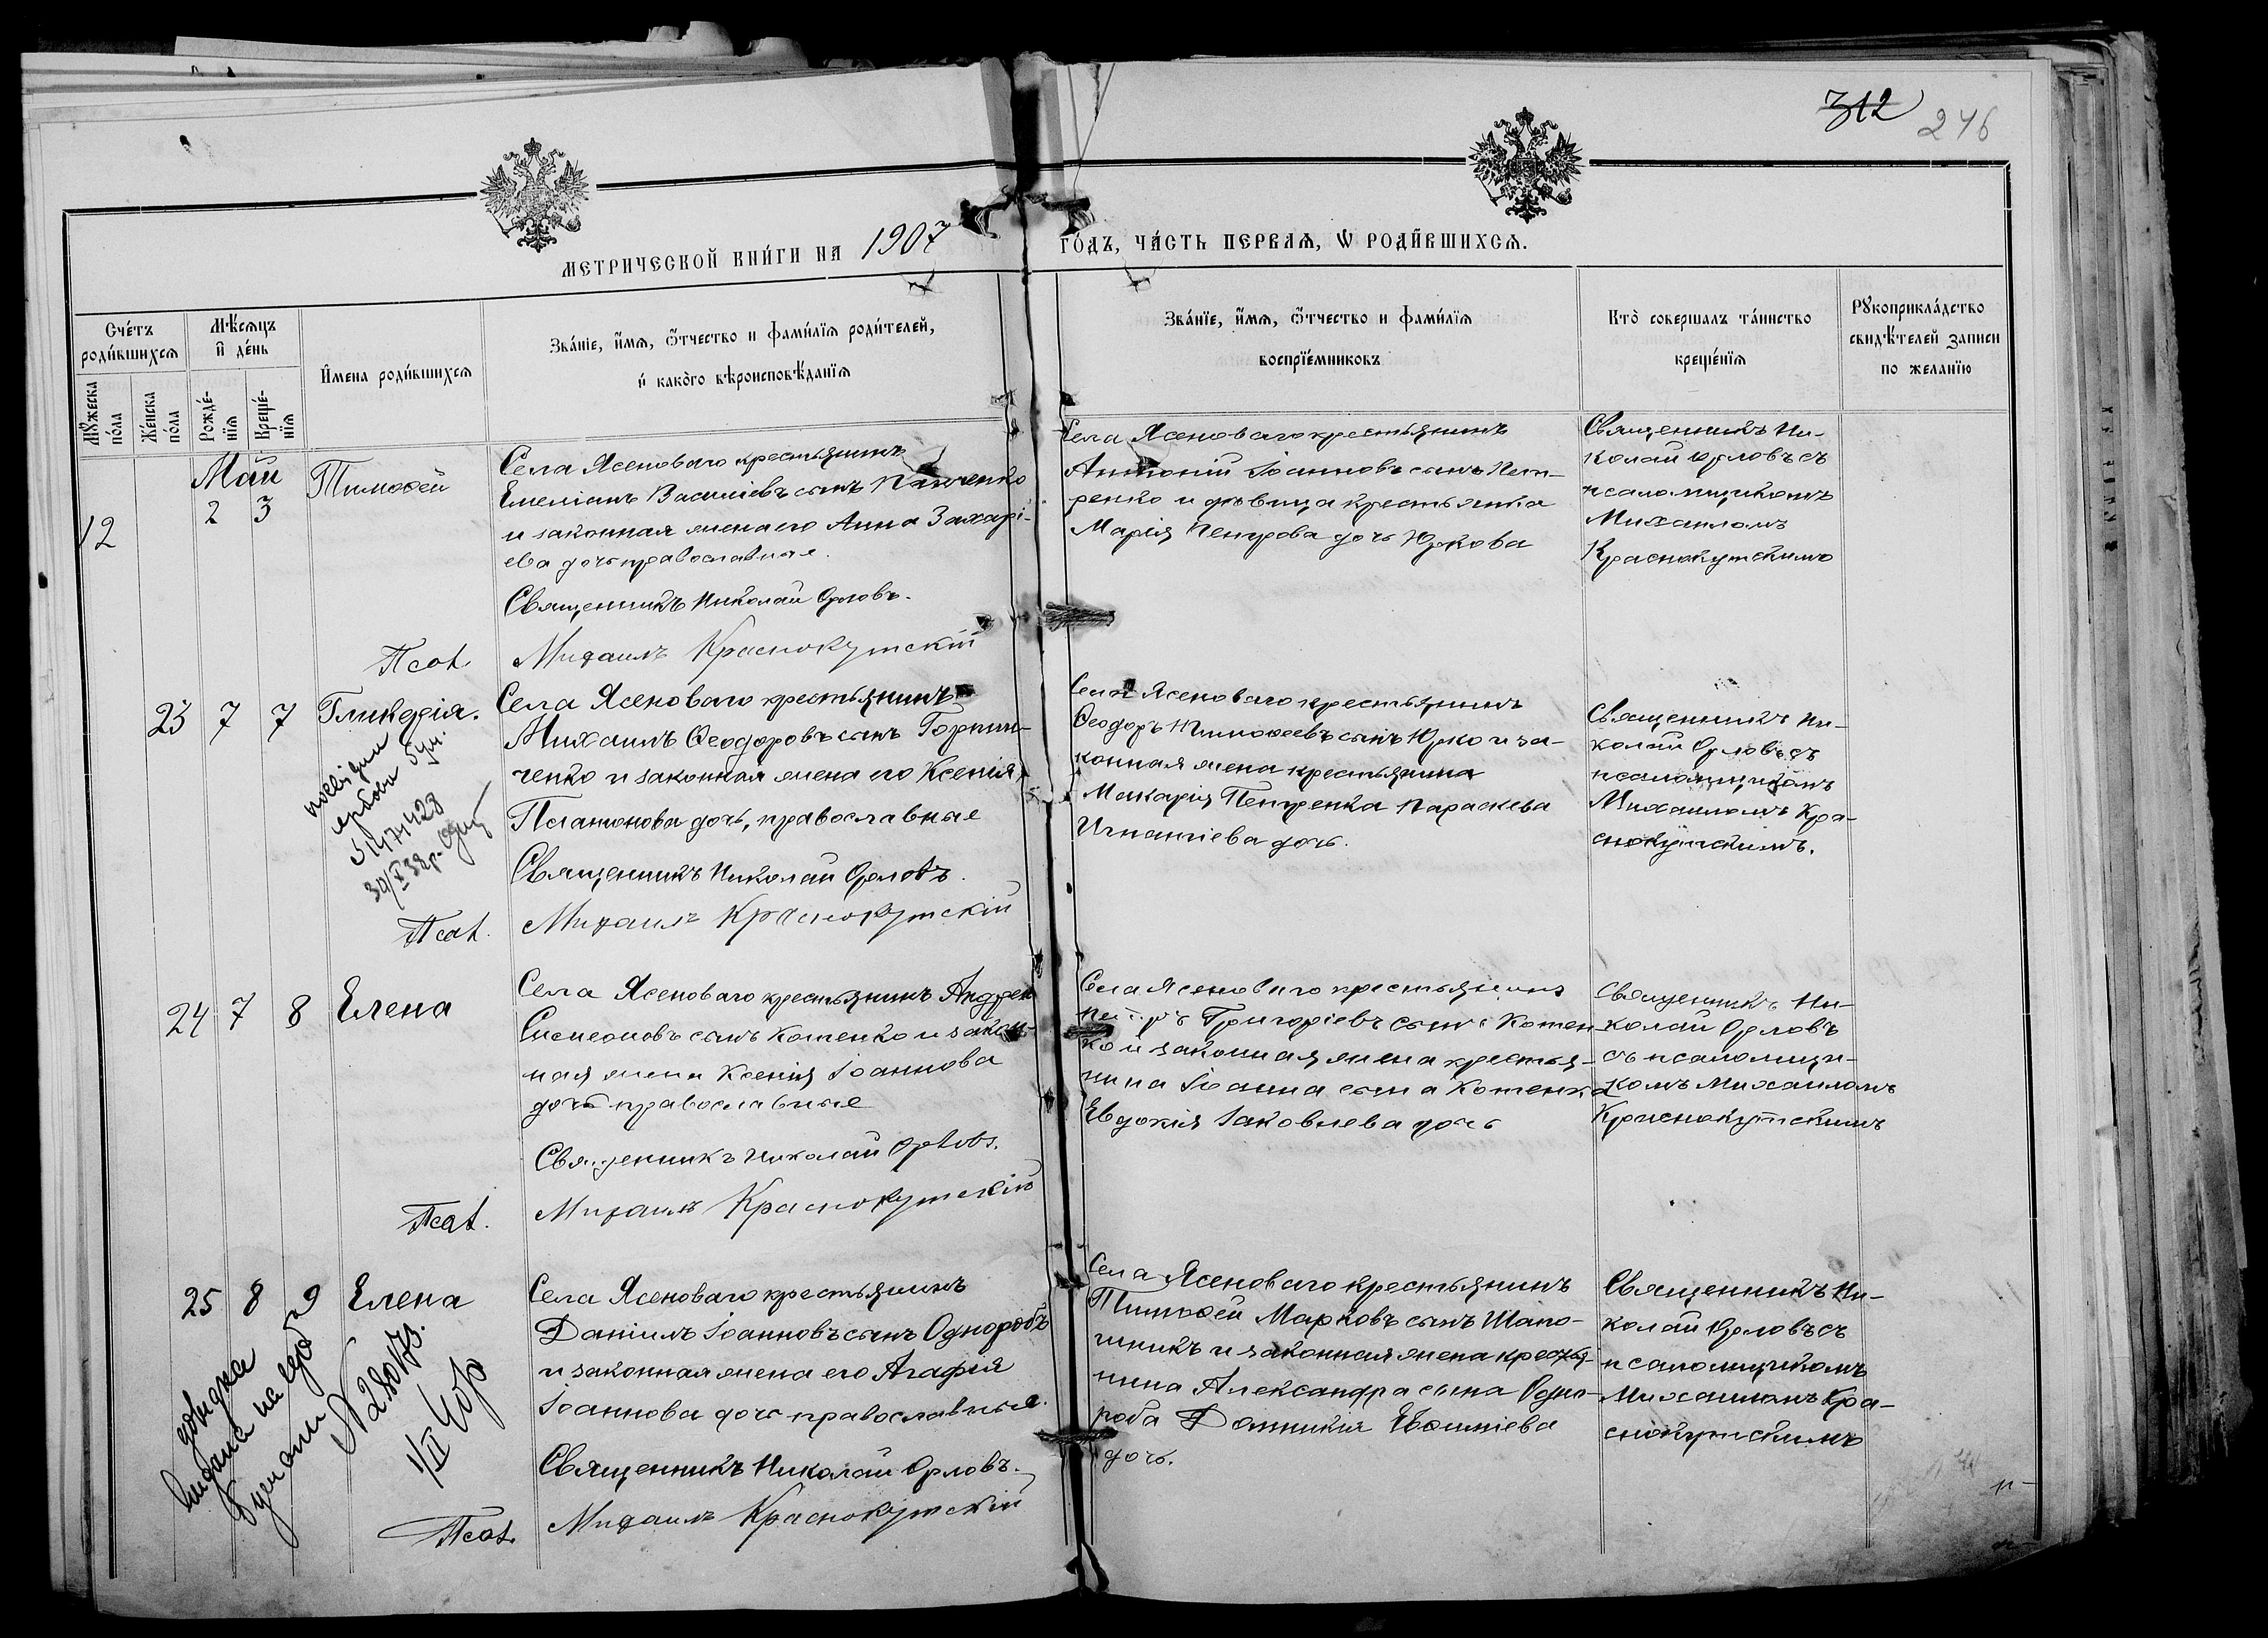 312
246
МЕТРИЧЕСКОЙ КНИ́ГИ НА 1907
ГО́ДЪ, ЧА́СТЬ ПЕРВАѦ, Ѡ РОДИ́ВШИХСѦ.
Сче́тъ роди́вшихсѧ
Мѣ́сѧцъ и҆ де́нь
И҆мена роди́вшихсѧ
Зва́нїе, и҆́мѧ, ѻ҆́тчество и фами́лїѧ роди́телей,
и҆ како́гѡ вѣроисповѣ́данїѧ
Зва́нїе, и҆́мѧ, ѻ҆́тчество и фами́лїѧ
воспрїе́мниковъ
Кто̀ соверша́лъ та́инство
креще́нїѧ
Рꙋкоприкла́дство
свидѣ́телей записи
по жела́нїю
Мꙋ́жеска по́ла
Же́нска по́ла
Рожде́-нїѧ
Креще́-нїѧ
Май
12
2 3
Тимоѳей
Села Ясеноваго крестьянинъ
Емеліанъ Василіевъ сынъ
и законная жена его Анна Захарі-
ева дочь православная.
Священникъ Николай Орловъ.
Псал. Михаилъ Краснокутскій
Села Ясеноваго крестьянинъ
Антоній Іоанновъ сынъ Пет-
ренко и дѣвица крестьянка
Марія Петрова дочь Юркова
Священникъ Ни-
колай Орловъ съ
псаломщикомъ
Михаиломъ
Краснокутскимъ
23 7 7
Гликерія.
30/X 38р.
Села Ясеноваго крестьянинъ
Михаилъ Ѳеодоровъ сынъ Горпин-
ченко и законная жена его Ксенія
Платонова дочь, православные
Священникъ Николай Орловъ.
Псал. Михаилъ Краснокутскій
Села Ясеноваго крестьянинъ
Ѳеодоръ Тимоѳеевъ сынъ Юрко и за-
конная жена крестьянина
Макарія Петренка Параскева
Игнатіева дочь.
Священникъ Ни-
колай Орловъ съ
псаломщикомъ
Михаиломъ Кра-
снокутскимъ.
24 7 8
Елена
Села Ясеноваго крестьянинъ Андрей
Симеоновъ сынъ Котенко и закон-
ная жена Ксенія Іоаннова
дочь православные
Священникъ Николай Орловъ.
Псал. Михаилъ Краснокутскій
Села Ясеноваго крестьянинъ
Петръ Григоріевъ сынъ Котен-
ко и законная жена крестья-
нина Іоанна сына Котенка
Евдокія Іаковлева дочь
Священникъ Ни-
колай Орловъ
съ псаломщи-
комъ Михаиломъ
Краснокутскимъ
25 8 9
Елена
довидка
видана на
N 280
1/II 40р
Села Ясеноваго крестьянинъ
Даніилъ Іоанновъ сынъ Однороб
и законная жена его Агафія
Іоаннова дочь православные.
Священникъ Николай Орловъ.
Псал. Михаилъ Краснокутскій
Села Ясеноваго крестьянинъ
Тимоѳей Марковъ сынъ Шапо-
шникъ и законная жена крестья-
нина Александра сына Одно-
роба Домникія
дочь.
Священникъ Ни-
колай Орловъ съ
псаломщикомъ
Михаиломъ Кра-
снокутскимъ